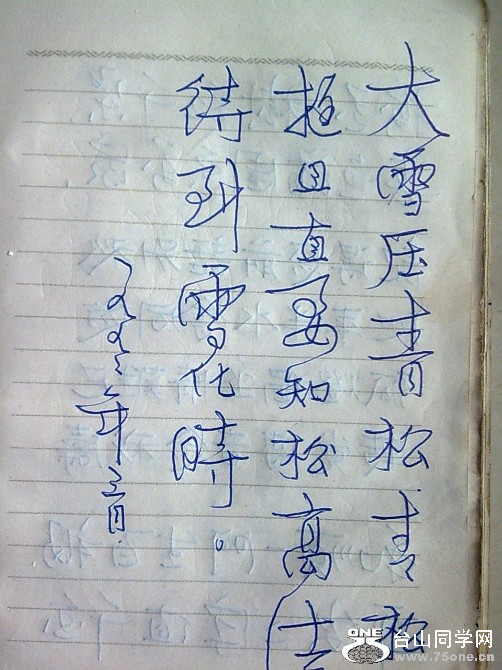 大雪压青松青松
挺且直要知松高洁
待到雪化時。
一九九年三月
ONE
台山同学网
www.75one.cn